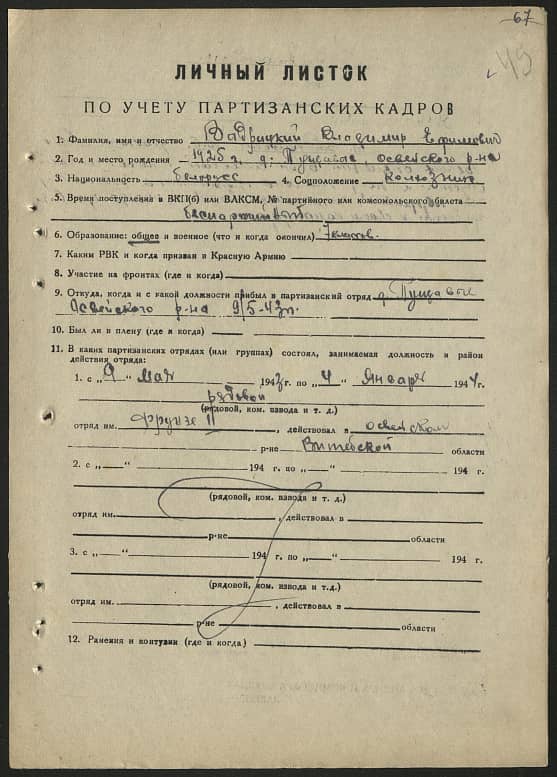 67
49
ЛИЧНЫЙ ЛИСТОК
ПО УЧЕТУ ПАРТИЗАНСКИХ КАДРОВ
1. Фамилия, имя и отчество Владимир Ефимович
2. Год и место рождения 1925 г. д. Освейского р-на
3. Национальность белорусс 4. Соцположение колхозник
5. Время поступления в ВКП(б) или ВЛКСМ, № партийного или комсомольского билета
беспартийный
6. Образование: общее и военное (что и когда окончил) 7 классов.
7. Каким РВК и когда призван в Красную Армию
8. Участие на фронтах (где и когда)
9. Откуда, когда и с какой должности прибыл в партизанский отряд д.
Освейского р-на 9/5-43г.
10. Был ли в плену (где и когда)
11. В каких партизанских отрядах (или группах) состоял, занимаемая должность и район
действия отряда:
1. с „9“ мая 1943г. по „4“ января 1944г.
рядовой
(рядовой, ком. взвода и т. д.)
отряд им. Фрунзе II, действовал в освейском
р-не Витебской области
2. с „ “ 194 г. по „ “ 194 г.
(рядовой, ком. взвода и т. д.)
отряд им. , действовал в
р-не области
3. с „ “ 194 г. по „ “ 194 г.
(рядовой, ком. взвода и т.д.)
отряд им. , действовал в
р-не области
12. Ранения и контузии (где и когда)